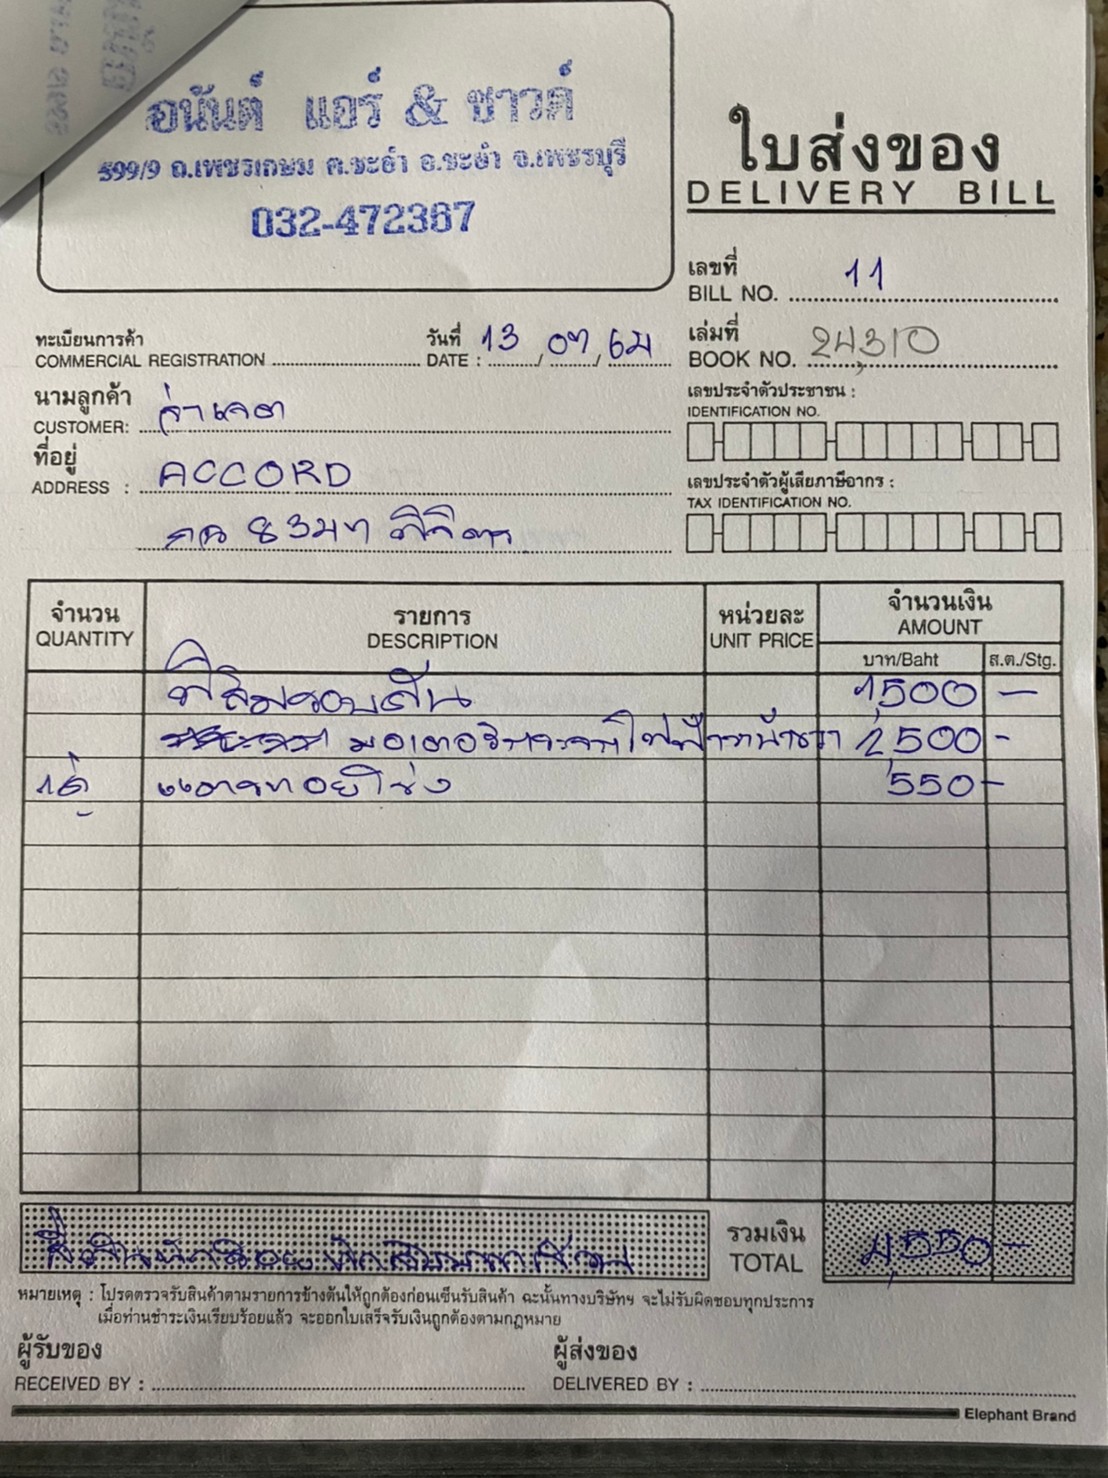 อนันต์ แอร์ & ซาวด์
599/9 ถ.เพชรเกษม ต.ชะอำ อ.ชะอำ จ.เพชรบุรี
032-472367
ใบส่งของ
DELIVERY BILL
เลขที่
BILL NO. 11
ทะเบียนการค้า
COMMERCIAL REGISTRATION
วันที่
DATE : 13 / 07 / 64
เล่มที่
BOOK NO. 24,310
นามลูกค้า
CUSTOMER:
ที่อยู่
ADDRESS : ACCORD
เลขประจำตัวประชาชน :
IDENTIFICATION NO.
เลขประจำตัวผู้เสียภาษีอากร :
TAX IDENTIFICATION NO.
จำนวน
QUANTITY
รายการ
DESCRIPTION
หน่วยละ
UNIT PRICE
จำนวนเงิน
AMOUNT
บาท/Baht
ส.ต./Stg.
ฟิล์มรอบคัน 1,500 -
มอเตอร์กระจกไฟฟ้าหน้าขวา 2,500 -
1คู่ แตรหอยโข่ง 550 -
รวมเงิน
TOTAL 4,550 -
หมายเหตุ : โปรดตรวจรับสินค้าตามรายการข้างต้นให้ถูกต้องก่อนเซ็นรับสินค้า ฉะนั้นทางบริษัทฯ จะไม่รับผิดชอบทุกประการ
เมื่อท่านชำระเงินเรียบร้อยแล้ว จะออกใบเสร็จรับเงินถูกต้องตามกฎหมาย
ผู้รับของ
RECEIVED BY :
ผู้ส่งของ
DELIVERED BY :
Elephant Brand